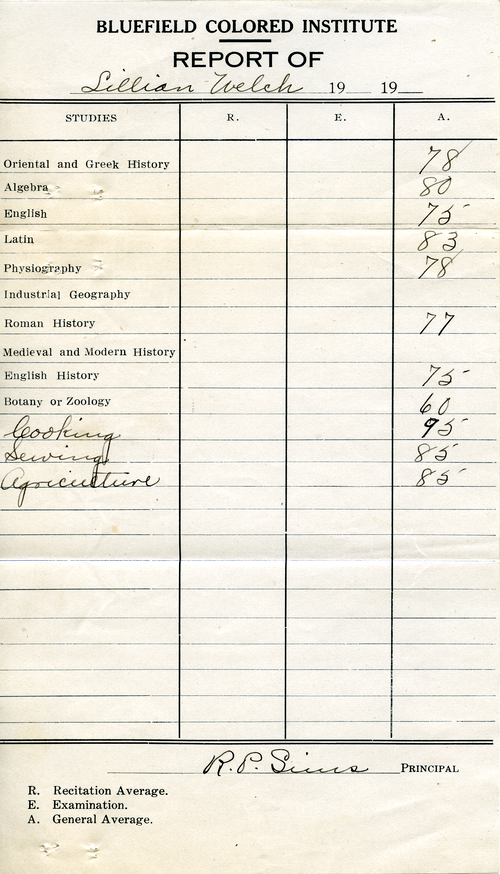 BLUEFIELD COLORED INSTITUTE
REPORT OF
Lillian Welch 19 19
STUDIES R. E. A.
Oriental and Greek History 78
Algebra 80
English 75
Latin 83
Physiography 78
Industrial Geography
Roman History 77
Medieval and Modern History
English History 75
Botany or Zoology 60
Cooking 95
Sewing 85
Agriculture 85
R. P. Sims PRINCIPAL
R. Recitation Average.
E. Examination.
A. General Average.